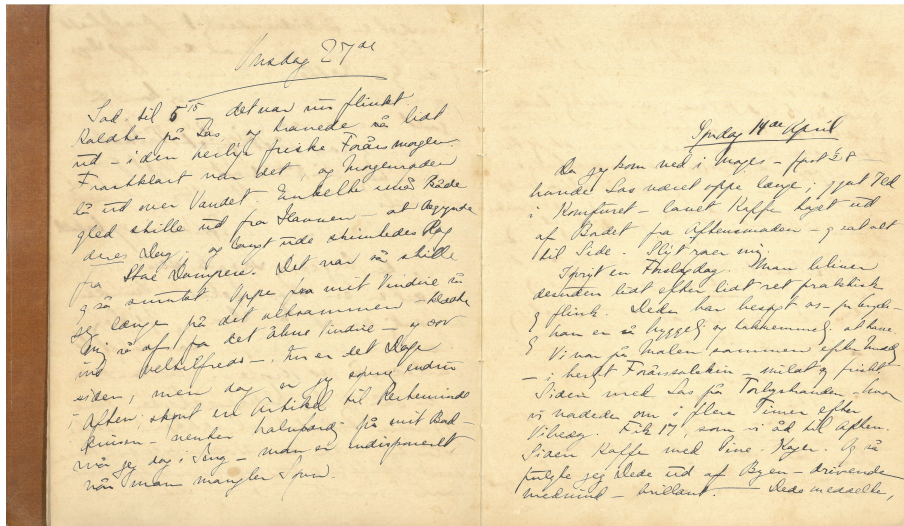 Onsdag 27de
Sad til 5 15 det var nu flinkt
kaldte på Las og havde så lidt
ud – i den herlige friske Forårsmorgen.
Frostklart var det, og Morgenrøden
lå ud over Vandet. Enkelte små Både
gled stille ud fra Havnen – at begynde
deres Dag, og langt ude skimtedes Røg
fra Store Dampere. Det var så stille
og så smukt. Oppe fra mit Vindue så
jeg længe på det altsammen – klædte
mig så af for det åbne Vindue – og sov
ind veltilfreds –. Nu er det Dage
siden, men dog er jeg søvnig endnu
i Aften, skønt en Artikel til Kerteminde
venter halvfærdig på mit Bord –
må jeg dog i Seng – man er indisponeret,
når man mangler Søvn.
Søndag 14de April
Da jeg kom ned i Morges – først ½ 8 –
havde Las været oppe længe; gjort Ild
i Komfuret – lavet Kaffe taget ud
af Bordet fra Aftensmaden – og sat alt
til Side. Sligt roer mig.
Iøvrigt en Dag. Man bliver
desuden lidt efter lidt ret praktisk
og flink. Dede har besøgt os –
han er så hyggelig og taknemmelig at have
Vi var på Malen sammen efter Middag
– i herligt Forårssolskin – mildt og friskt
Siden med Las på Torbystranden – hvor
vi vadede om i flere Timer efter
Vibeæg. Fik 17, som vi åd til Aften.
Siden Kaffe med Fine Kager. Og så
fulgte jeg Dede ud af Byen – drivende
medvind – brillant. – Dede meddelte,